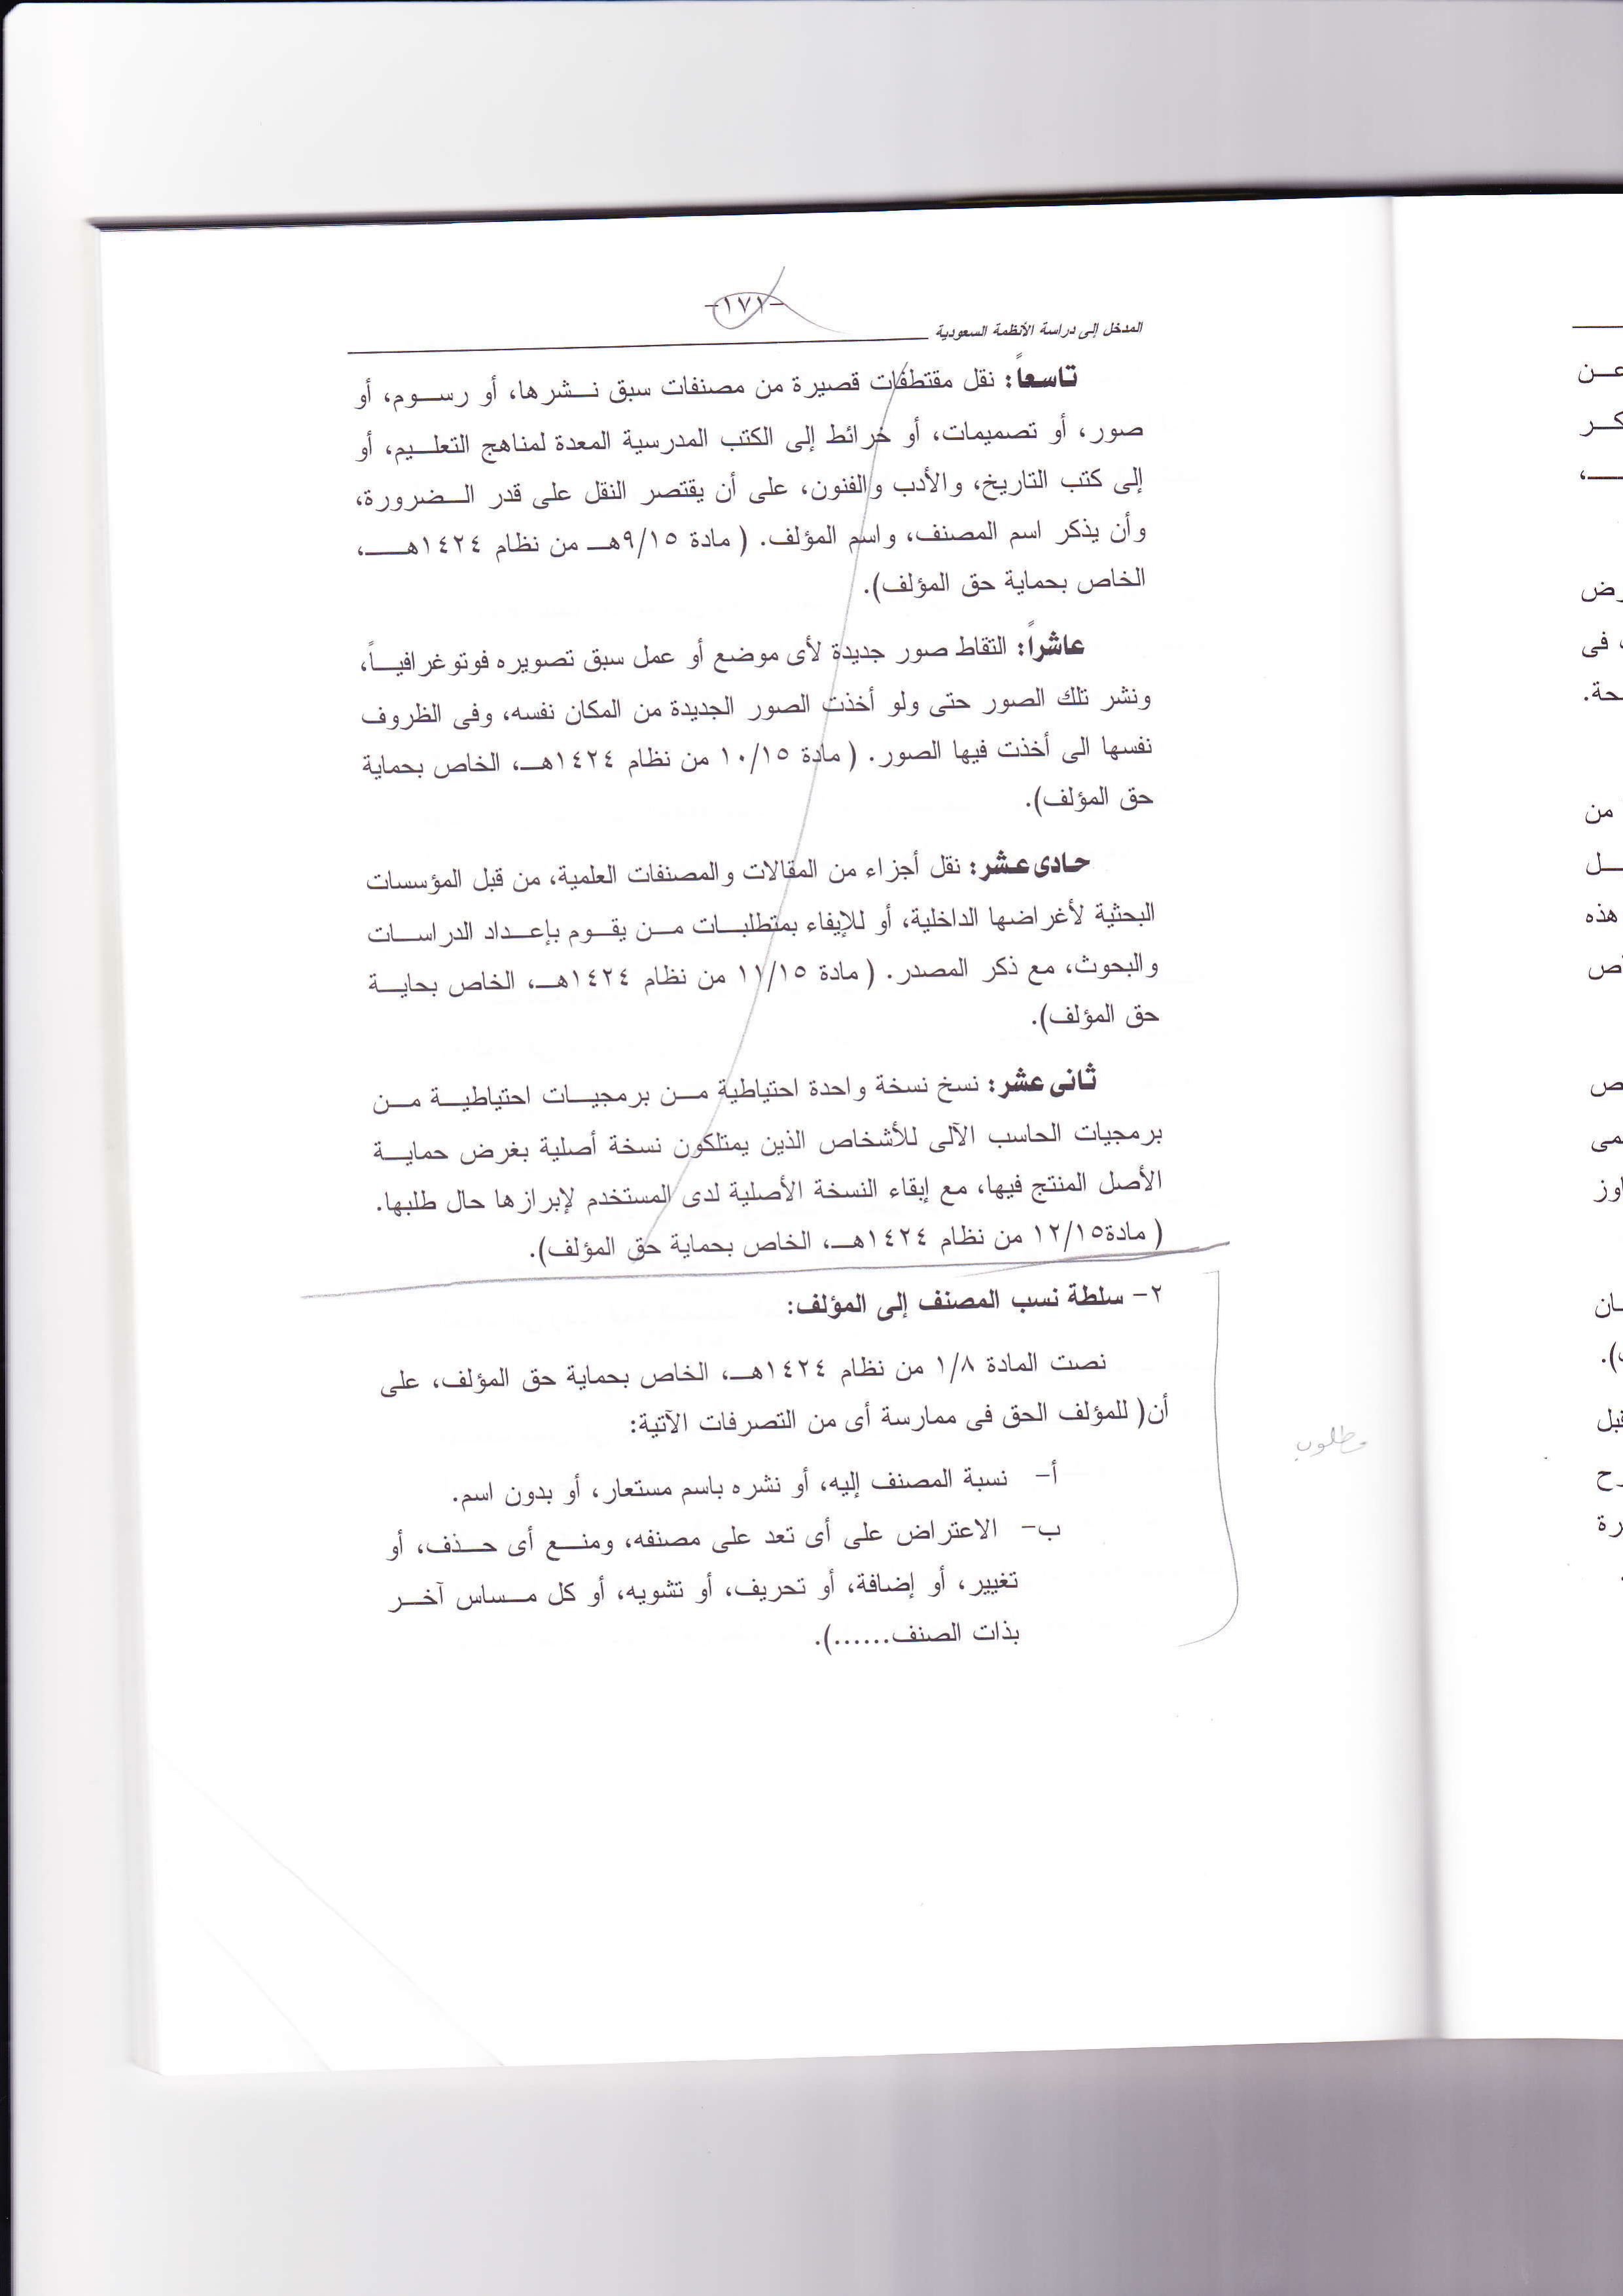 -١٧١-
المدخل إلى دراسة الأنظمة السعودية
تاسعاً: نقل مقتطفات قصيرة من مصنفات سبق نشرها، أو رسوم، أو
صور، أو تصميمات، أو خرائط إلى الكتب المدرسية المعدة لمناهج التعليم، أو
إلى كتب التاريخ، والأدب والفنون، على أن يقتصر النقل على قدر الضرورة،
وأن يذكر اسم المصنف، واسم المؤلف. ( مادة ٩/١٥هـ من نظام ١٤٢٤هـ،
الخاص بحماية حق المؤلف).
عاشراً: التقاط صور جديدة لأى موضع أو عمل سبق تصويره فوتوغرافياً،
ونشر تلك الصور حتى ولو أخذت الصور الجديدة من المكان نفسه، وفى الظروف
نفسها الى أخذت فيها الصور. ( مادة ١٠/١٥ من نظام ١٤٢٤هـ، الخاص بحماية
حق المؤلف).
حادى عشر: نقل أجزاء من المقالات والمصنفات العلمية، من قبل المؤسسات
البحثية لأغراضها الداخلية، أو للإيفاء بمتطلبات من يقوم بإعداد الدراسات
والبحوث، مع ذكر المصدر. ( مادة ١١/١٥ من نظام ١٤٢٤هـ، الخاص بحاية
حق المؤلف).
ثانى عشر: نسخ نسخة واحدة احتياطية من برمجيات احتياطية من
برمجيات الحاسب الآلى للأشخاص الذين يمتلكون نسخة أصلية بغرض حماية
الأصل المنتج فيها، مع إبقاء النسخة الأصلية لدى المستخدم لإبرازها حال طلبها.
( مادة١٢/١٥ من نظام ١٤٢٤هـ، الخاص بحماية حق المؤلف).
٢- سلطة نسب المصنف إلى المؤلف:
نصت المادة ١/٨ من نظام ١٤٢٤هـ، الخاص بحماية حق المؤلف، على
أن( للمؤلف الحق فى ممارسة أى من التصرفات الآتية:
مطلوب
أ- نسبة المصنف إليه، أو نشره باسم مستعار، أو بدون اسم.
ب- الاعتراض على أى تعد على مصنفه، ومنع أى حذف، أو
تغيير، أو إضافة، أو تحريف، أو تشويه، أو كل مساس آخر
بذات الصنف......).